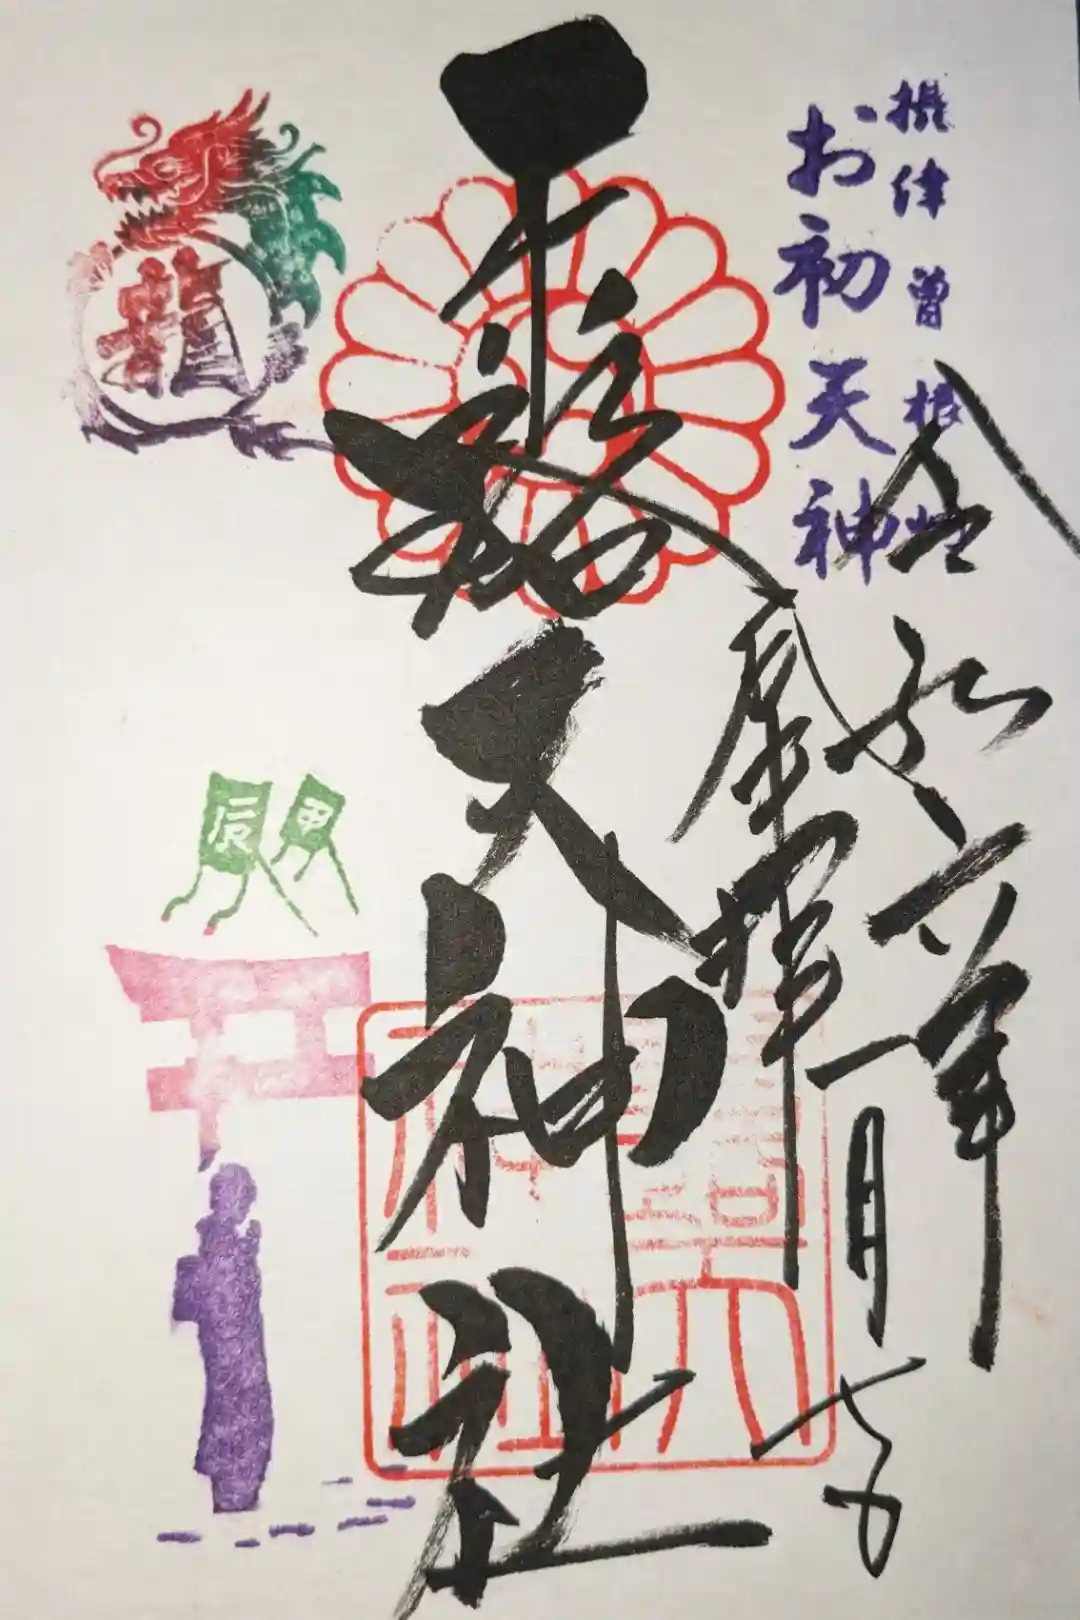 摂津曽根崎
お初天神
令和六年
一月七日
奉拝
露天神社
龍
甲
辰